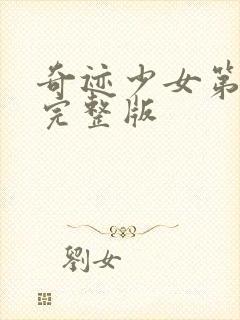 奇迹少女第
完整版
劉女